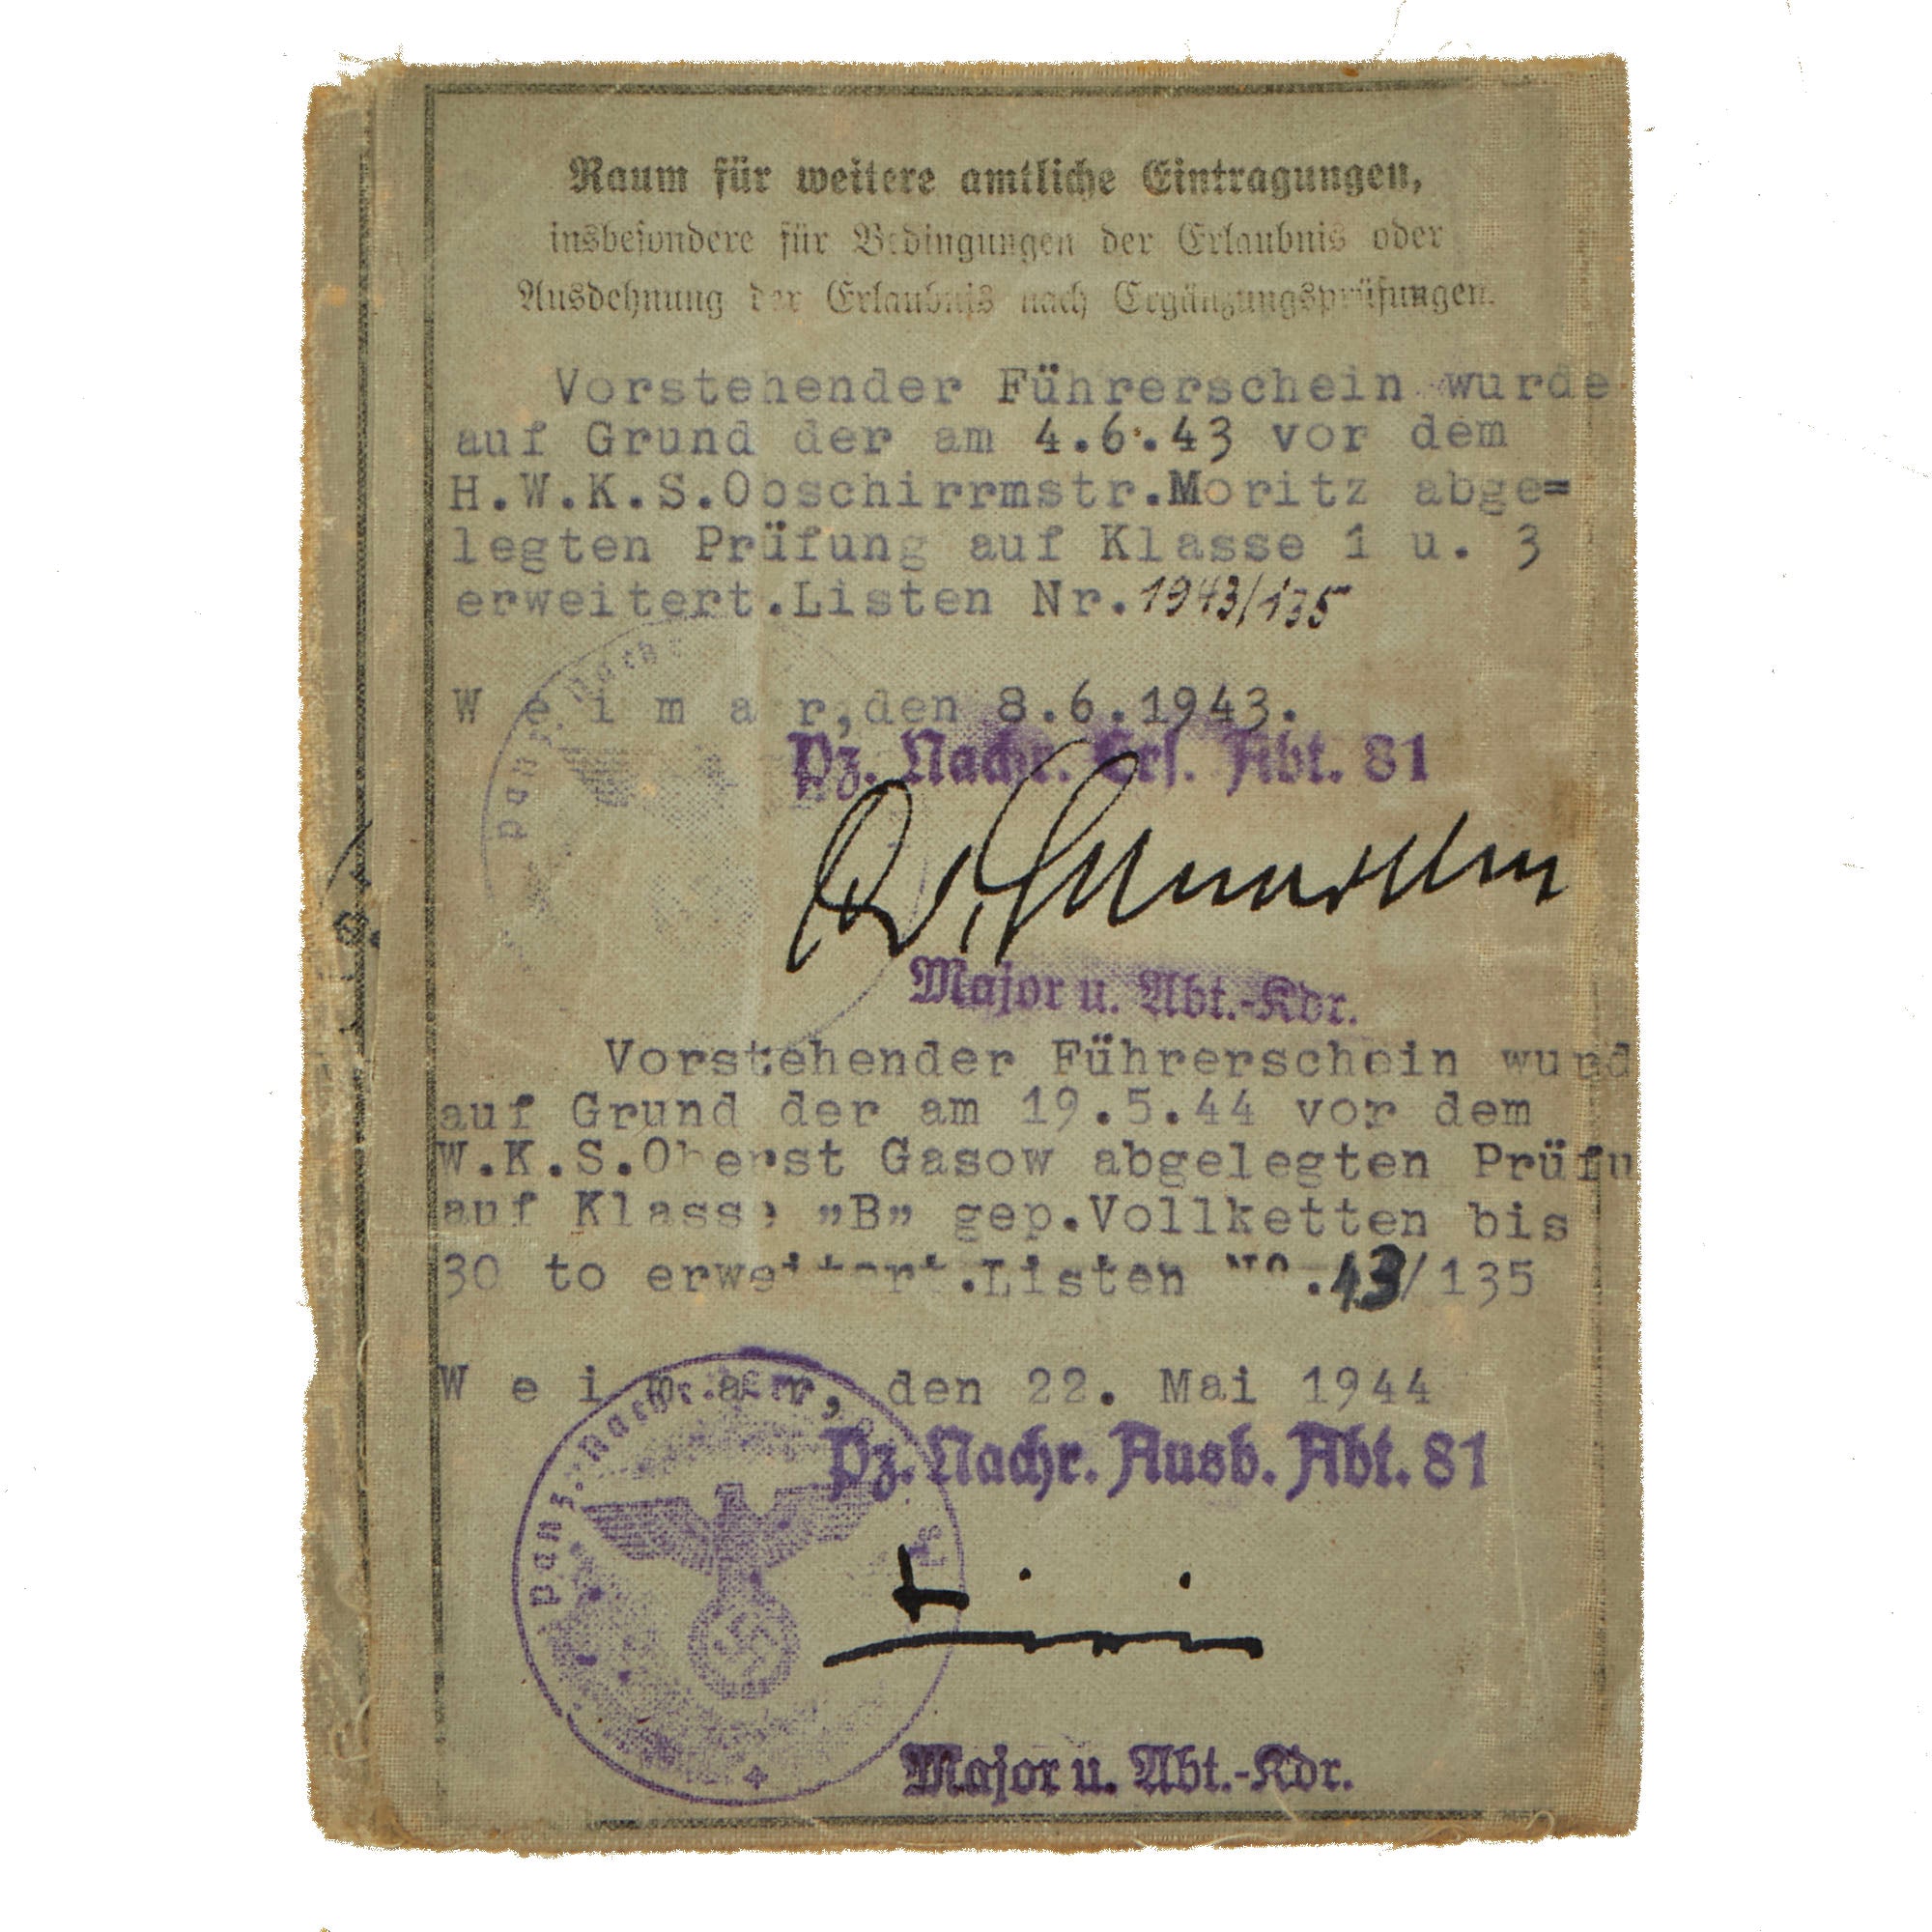 Raum für weitere amtliche Eintragungen,
insbesondere für Bedingungen der Erlaubnis oder
Ausdehnung der Erlaubnis nach Ergänzungsprüfungen.
Vorstehender Führerschein wurde
auf Grund der am 4.6.43 vor dem
H.W.K.S.Obschirrmstr.Moritz abge=
legten Prüfung auf Klasse 1 u. 3
erweitert.Listen Nr.1943/135
W e i m a r,den 8.6.1943.
Pz. Nachr. Ers. Abt. 81
Major u. Abt.-Kdr.
Vorstehender Führerschein wurd
auf Grund der am 19.5.44 vor dem
W.K.S.Oberst Gasow abgelegten Prüfu
auf Klasse „B" gep.Vollketten bis
30 to erweitert.Listen No.43/135
W e i m a r, den 22. Mai 1944
Pz. Nachr. Ausb. Abt. 81
Panz.-Nachr.
Major u. Abt.-Kdr.